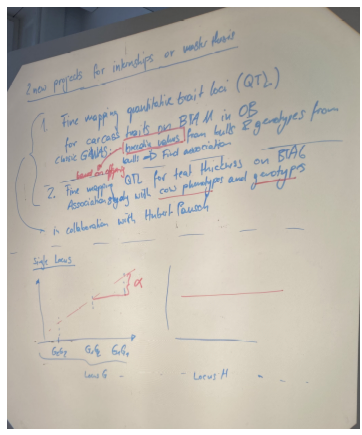 2 new projects for internships or master thesis
1. Fine mapping quantitative trait loci (QTL)
for carcass traits on BTA 11 in OB
classic GWAS: breeding values from bulls & genotypes from
based on offspring bulls → Find association
2. Fine mapping QTL for teat thickness on BTA6
Association study with cow phenotypes and genotypes
in collaboration with Hubert Pausch
Single Locus
α
Locus G
Locus H